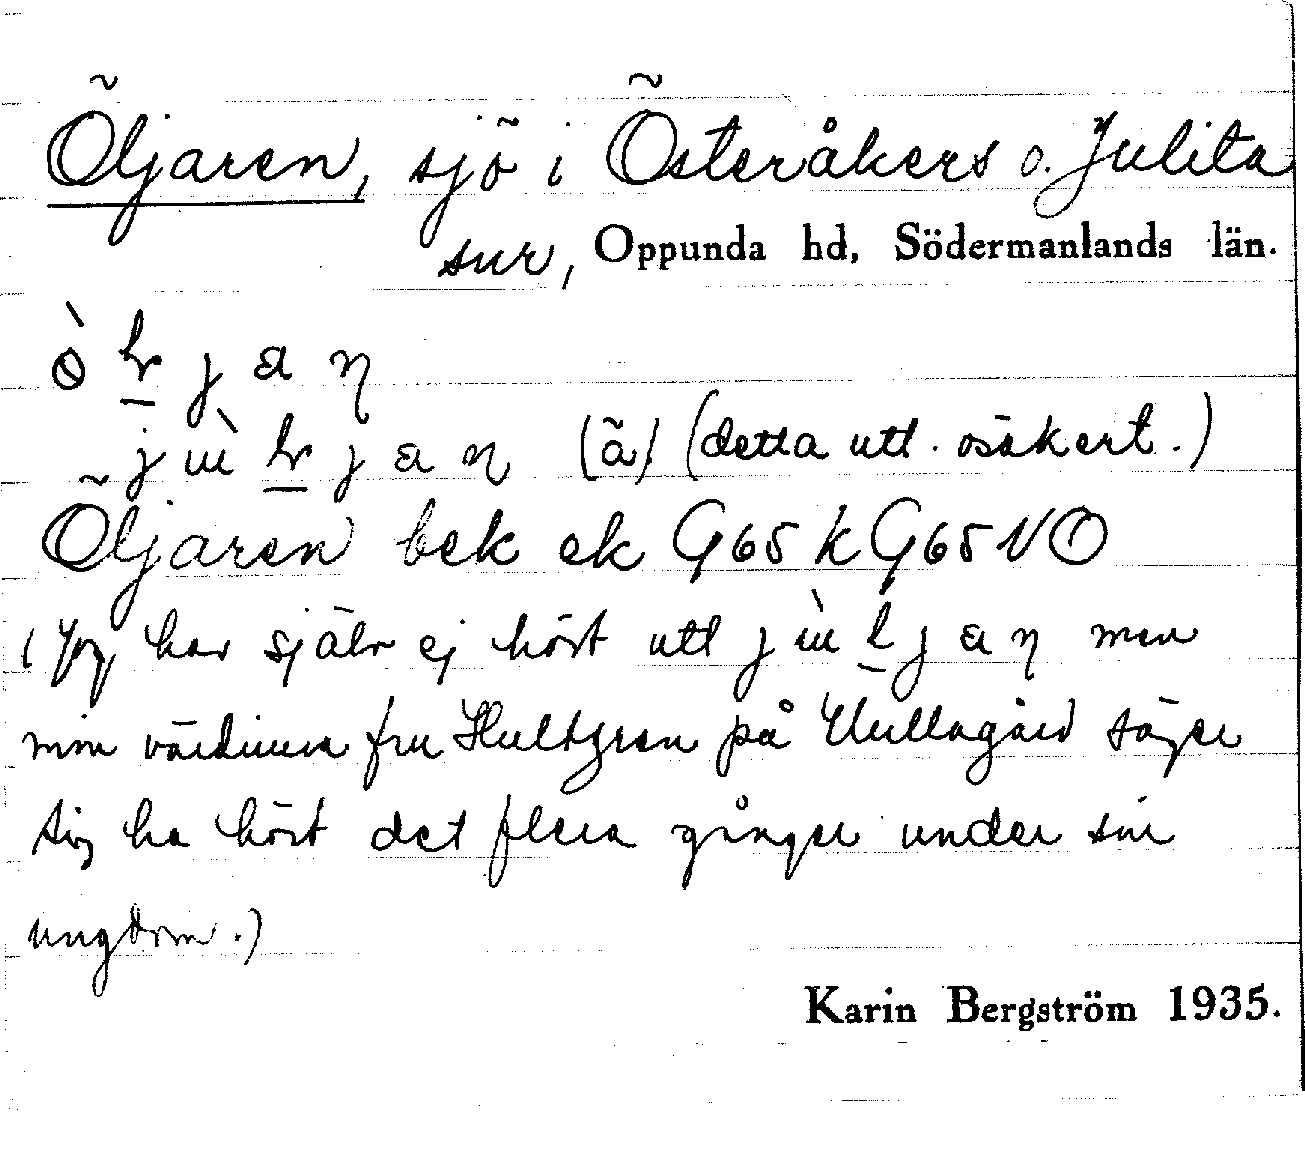 Öljaren, sjö i Österåkers o. Julita
snr, Oppunda hd, Södermanlands län.
j a
j j a (ä) (detta utt. osäkert.)
Öljaren bek ek G65 k G65 NO
(Jag har själv ej hört utt j j a men
min värdinna fru Hultgren på säger
sig ha hört det flera gånger under sin
ungdom.)
Karin Bergström 1935.